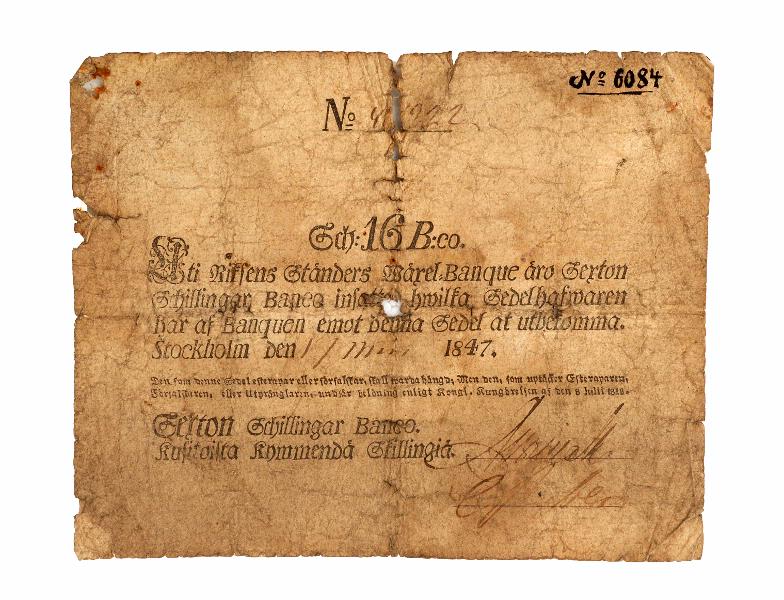 No 6084
No
Sch: 16 B:co.
Uti Riksens Ständers Wäxel-Banque äro Sexton
Schillingar Banco insatte, hwilka Sedelhafwaren
har af Banquen emot denna Sedel at utbekomma.
Stockholm den 1847.
Den som denne Sedel efterapar eller förfalskar, skall warda hängd; Men den, som uptäcker Efteraparen,
Förfalskaren, eller Utpränglaren, undfår belöning enligt Kongl. Kungörelsen af den 8 Julii
Sexton Schillingar Banco.
Kusitoista Kymmendä Skillingiä.